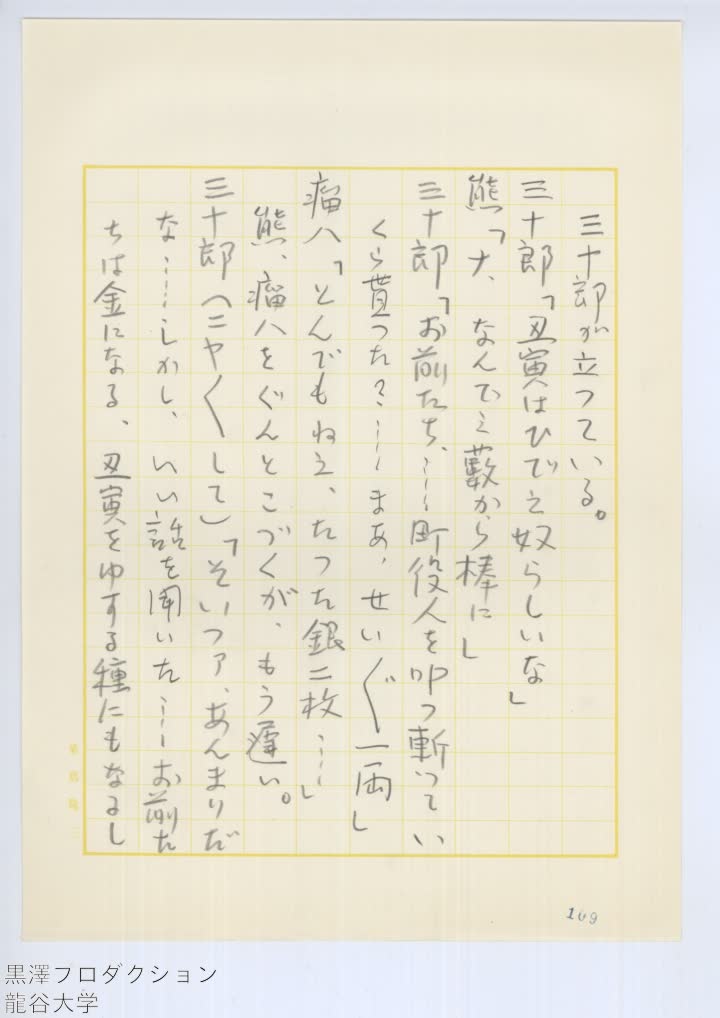 三十郎が立つている。
三十郎「丑寅はひでえ奴らしいな」
熊「ナ、なんでえ藪から棒に」
三十郎「お前たち、……町役人を叩つ斬つてい
くら貰つた？……まあ、せい〴〵一両」
瘤八「とんでもねえ、たつた銀二枚……」
熊、瘤八をぐんとこづくが、もう遅い。
三十郎（ニヤ〳〵して）「そいつア、あんまりだ
な……しかし、いい話を聞いた……お前た
ちは金になる、丑寅をゆする種にもなるし
109
黒澤プロダクション
龍谷大学